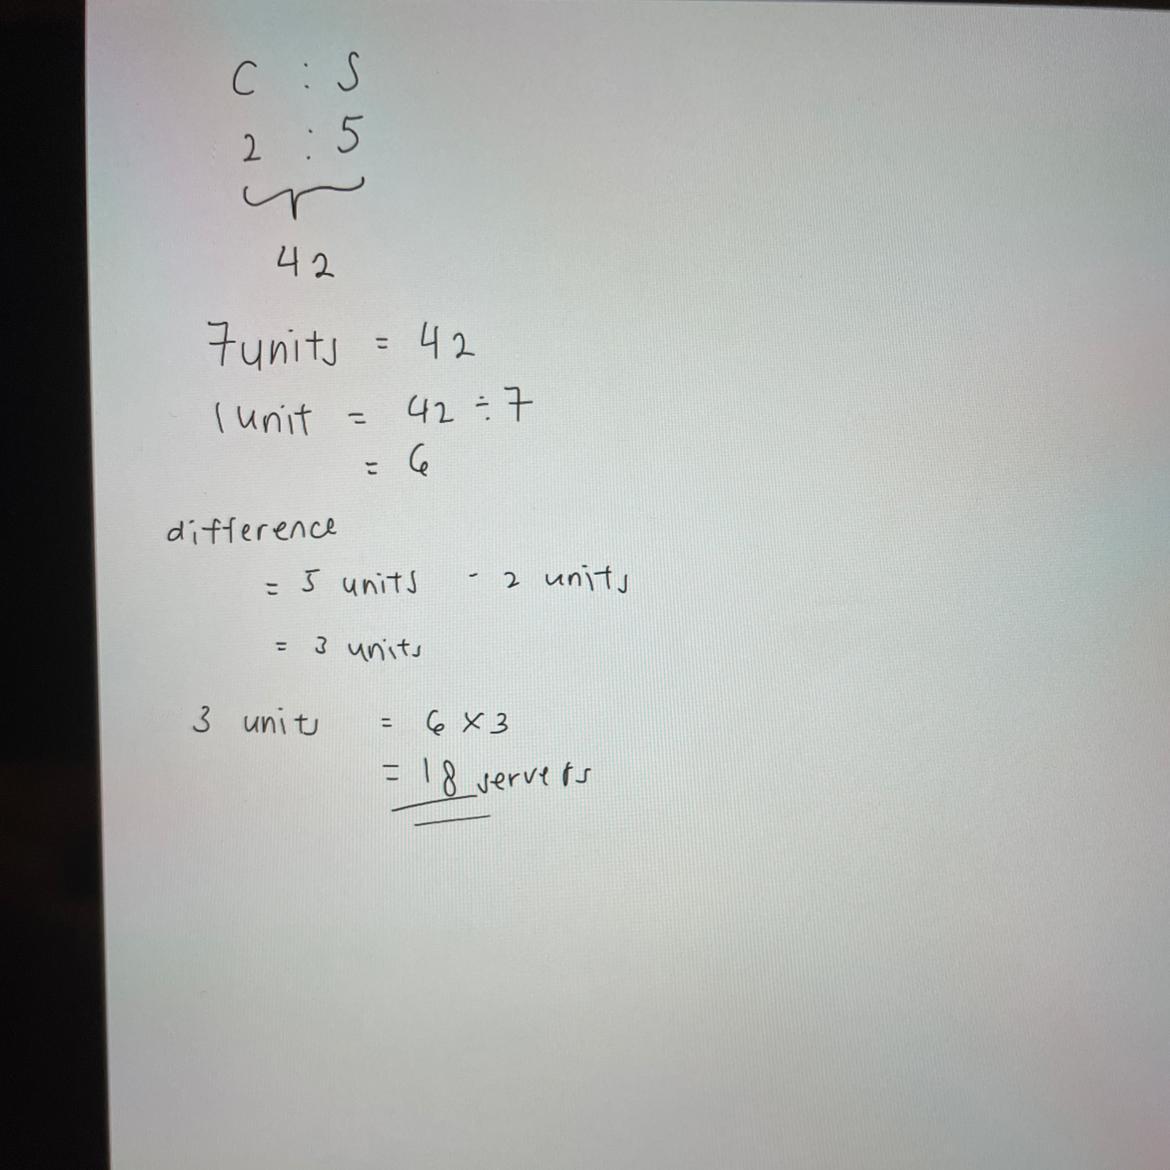 C : S
2 : 5
42
7 units = 42
1 unit = 42 ÷ 7
= 6
difference
= 5 units - 2 units
= 3 units
3 units = 6 × 3
= 18 servers